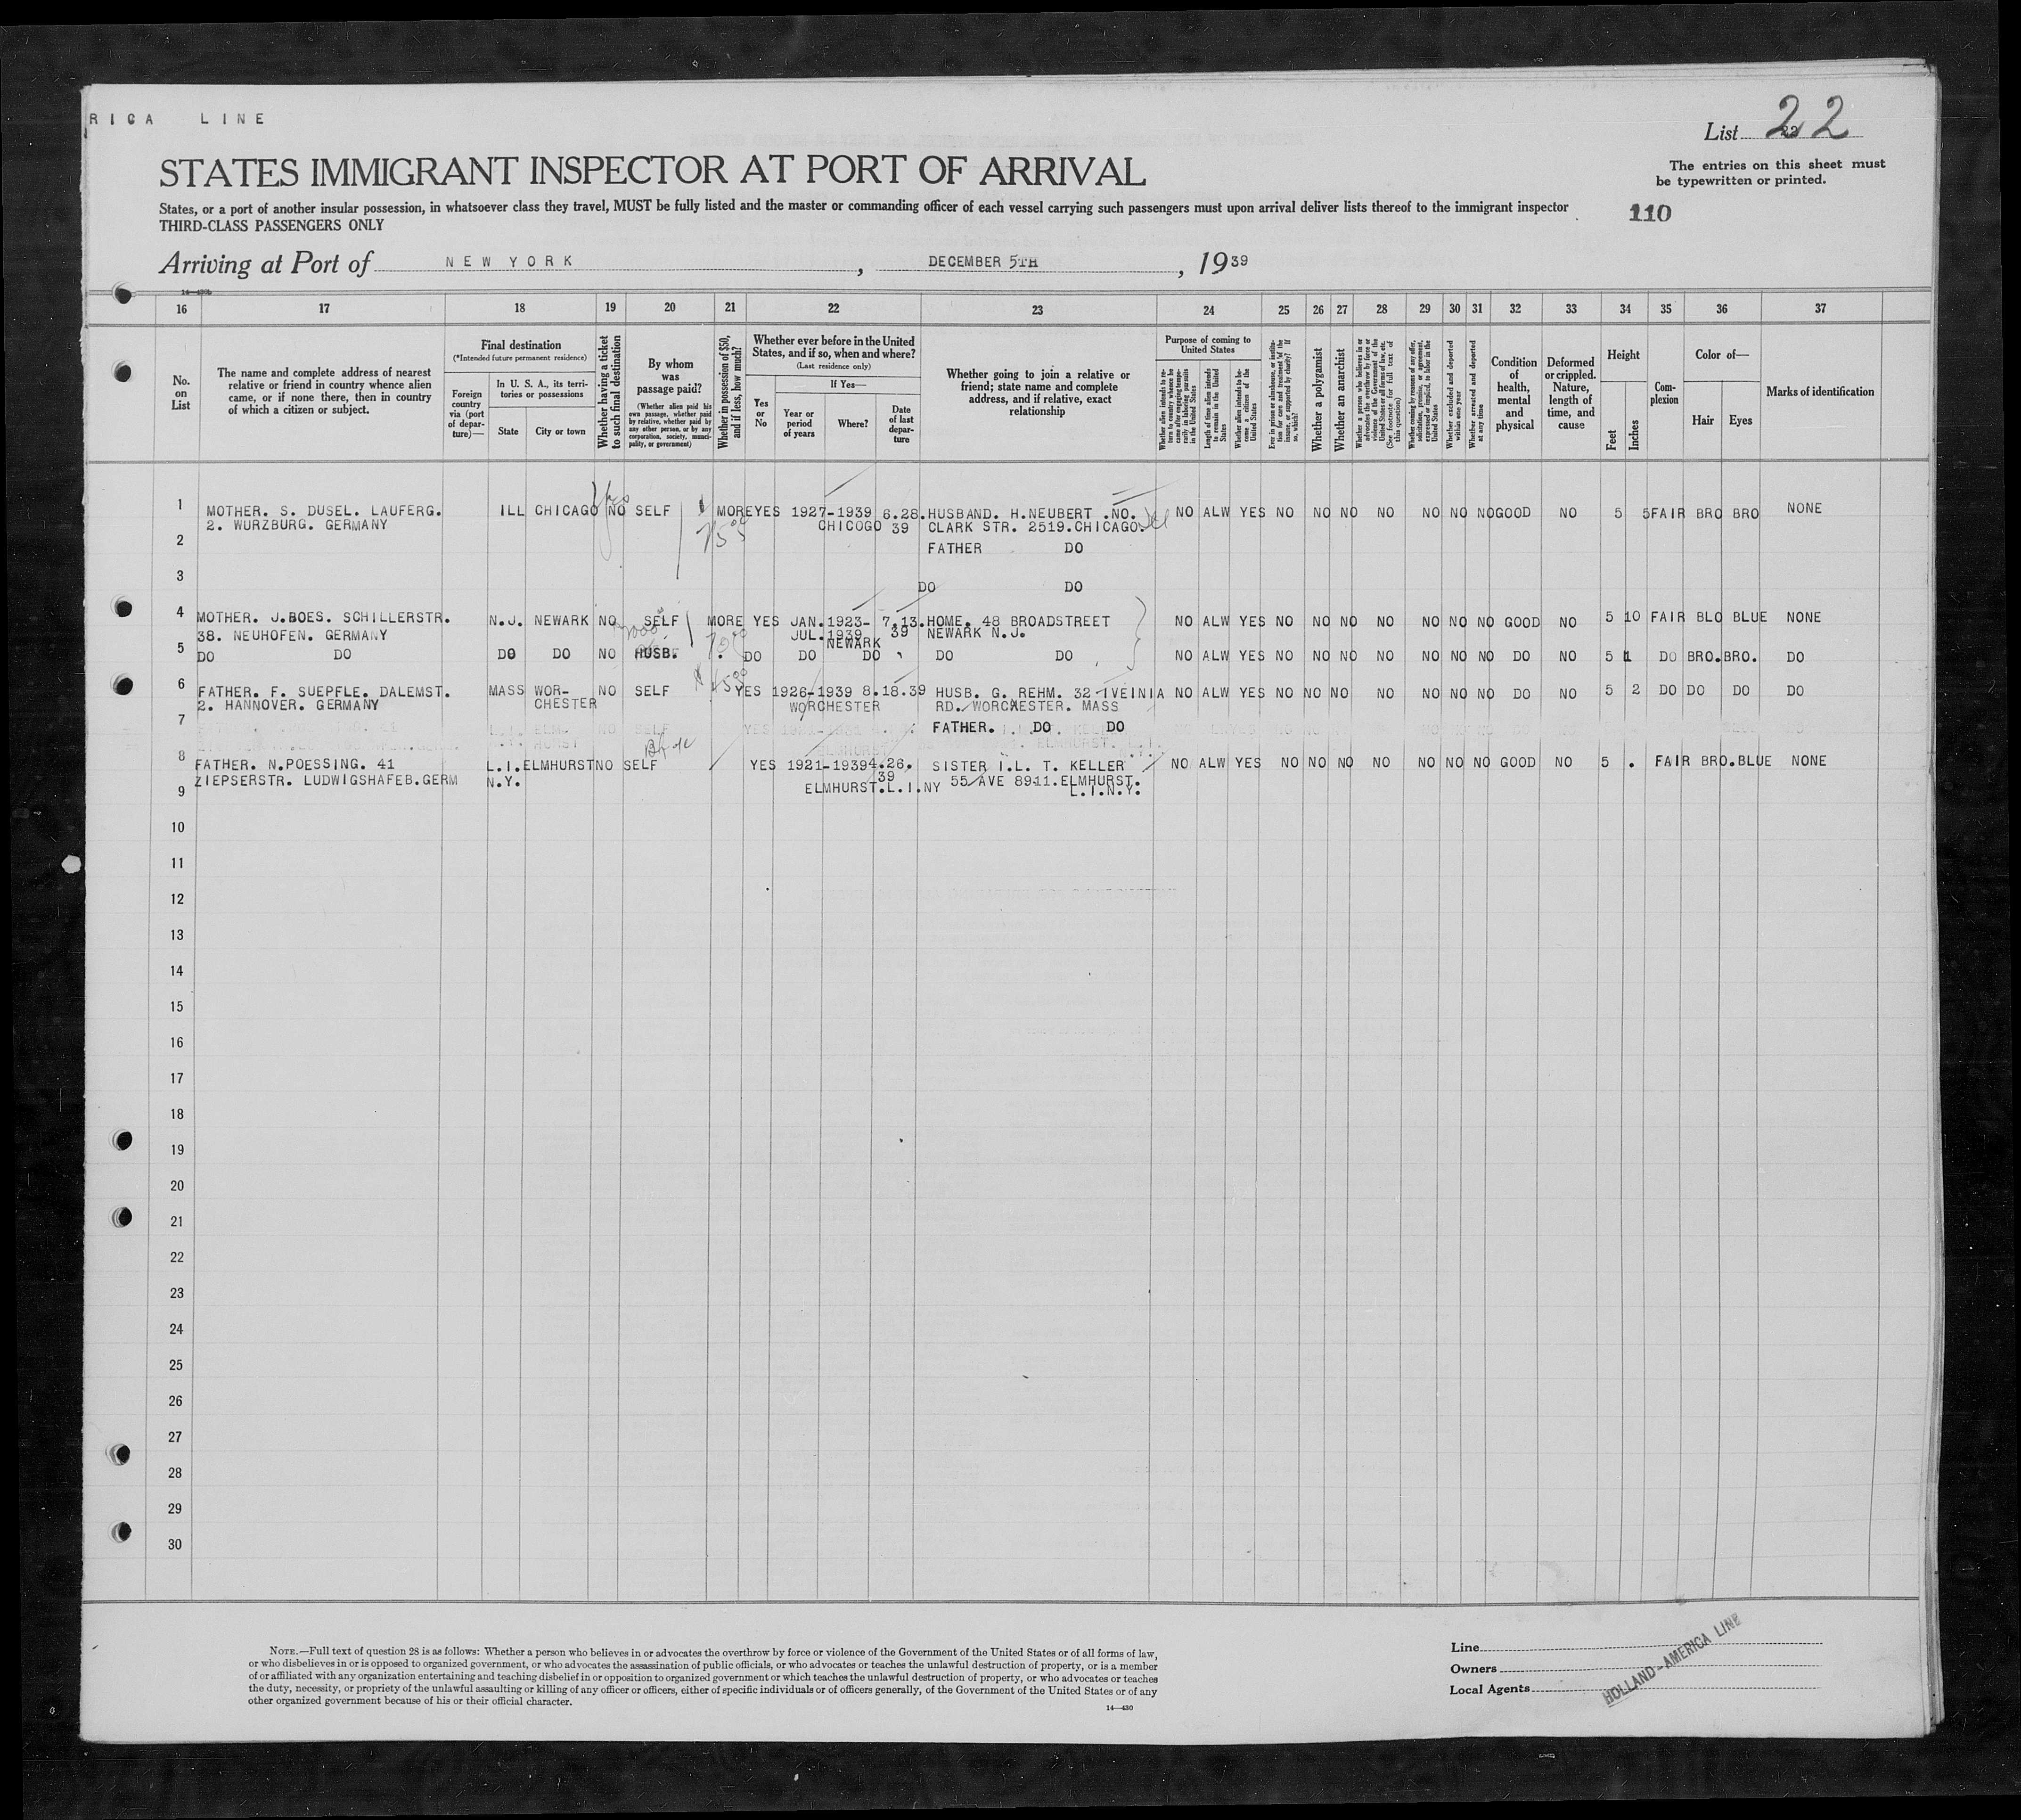 RICA LINE
List 22
STATES IMMIGRANT INSPECTOR AT PORT OF ARRIVAL
The entries on this sheet must
be typewritten or printed.
States, or a port of another insular possession, in whatsoever class they travel, MUST be fully listed and the master or commanding officer of each vessel carrying such passengers must upon arrival deliver lists thereof to the immigrant inspector
THIRD-CLASS PASSENGERS ONLY
110
Arriving at Port of NEW YORK, DECEMBER 5TH, 1939
14—430
16 17 18 19 20 21 22 23 24 25 26 27 28 29 30 31 32 33 34 35 36 37
No. on List
The name and complete address of nearest relative or friend in country whence alien came, or if none there, then in country of which a citizen or subject.
Final destination
(*Intended future permanent residence)
Foreign country via (port of departure)—
In U. S. A., its territories or possessions
State
City or town
Whether having a ticket to such final destination
By whom was passage paid?
(Whether alien paid his own passage, whether paid by relative, whether paid by any other person, or by any corporation, society, municipality, or government)
Whether in possession of $50, and if less, how much?
Whether ever before in the United States, and if so, when and where?
(Last residence only)
Yes or No
If Yes—
Year or period of years
Where?
Date of last departure
Whether going to join a relative or friend; state name and complete address, and if relative, exact relationship
Purpose of coming to United States
Length of time alien intends to remain in the United States
Whether alien intends to become a citizen of the United States
Whether a polygamist
Whether an anarchist
Whether excluded and deported within one year
Whether arrested and deported at any time
Condition of health, mental and physical
Deformed or crippled. Nature, length of time, and cause
Height
Feet
Inches
Complexion
Color of—
Hair
Eyes
Marks of identification
1 MOTHER. S. DUSEL. LAUFERG. ILL CHICAGO NO SELF MORE YES 1927-1939 6.28. HUSBAND. H.NEUBERT .NO. NO ALW YES NO NO NO NO NO NO NO GOOD NO 5 5 FAIR BRO BRO NONE
2. WURZBURG. GERMANY CHICOGO 39 CLARK STR. 2519.CHICAGO.
2 FATHER DO
3 DO DO
4 MOTHER. J.BOES. SCHILLERSTR. N.J. NEWARK NO SELF MORE YES JAN.1923- 7.13. HOME. 48 BROADSTREET NO ALW YES NO NO NO NO NO NO NO GOOD NO 5 10 FAIR BLO BLUE NONE
38. NEUHOFEN. GERMANY JUL.1939 39 NEWARK N.J.
NEWARK
5 DO DO DO DO NO HUSB. DO DO DO DO DO NO ALW YES NO NO NO NO NO NO NO DO NO 5 1 DO BRO. BRO. DO
6 FATHER. F. SUEPFLE. DALEMST. MASS WOR- NO SELF YES 1926-1939 8.18.39 HUSB. G. REHM. 32 IVEINIA NO ALW YES NO NO NO NO NO NO NO DO NO 5 2 DO DO DO DO
2. HANNOVER. GERMANY CHESTER WORCHESTER RD. WORCHESTER. MASS
7 FATHER. DO DO
8 FATHER. N.POESSING. 41 L.I. ELMHURST NO SELF YES 1921-1939 4.26. SISTER I.L. T. KELLER NO ALW YES NO NO NO NO NO NO NO GOOD NO 5 . FAIR BRO. BLUE NONE
ZIEPSERSTR. LUDWIGSHAFEB.GERM N.Y. 39
9 ELMHURST.L.I.NY 55 AVE 8941.ELMHURST.
L.I.N.Y.
10
11
12
13
14
15
16
17
18
19
20
21
22
23
24
25
26
27
28
29
30
NOTE.—Full text of question 28 is as follows: Whether a person who believes in or advocates the overthrow by force or violence of the Government of the United States or of all forms of law,
or who disbelieves in or is opposed to organized government, or who advocates the assassination of public officials, or who advocates or teaches the unlawful destruction of property, or is a member
of or affiliated with any organization entertaining and teaching disbelief in or opposition to organized government or which teaches the unlawful destruction of property, or who advocates or teaches
the duty, necessity, or propriety of the unlawful assaulting or killing of any officer or officers, either of specific individuals or of officers generally, of the Government of the United States or of any
other organized government because of his or their official character.
14—430
Line
Owners
Local Agents
HOLLAND-AMERICA LINE